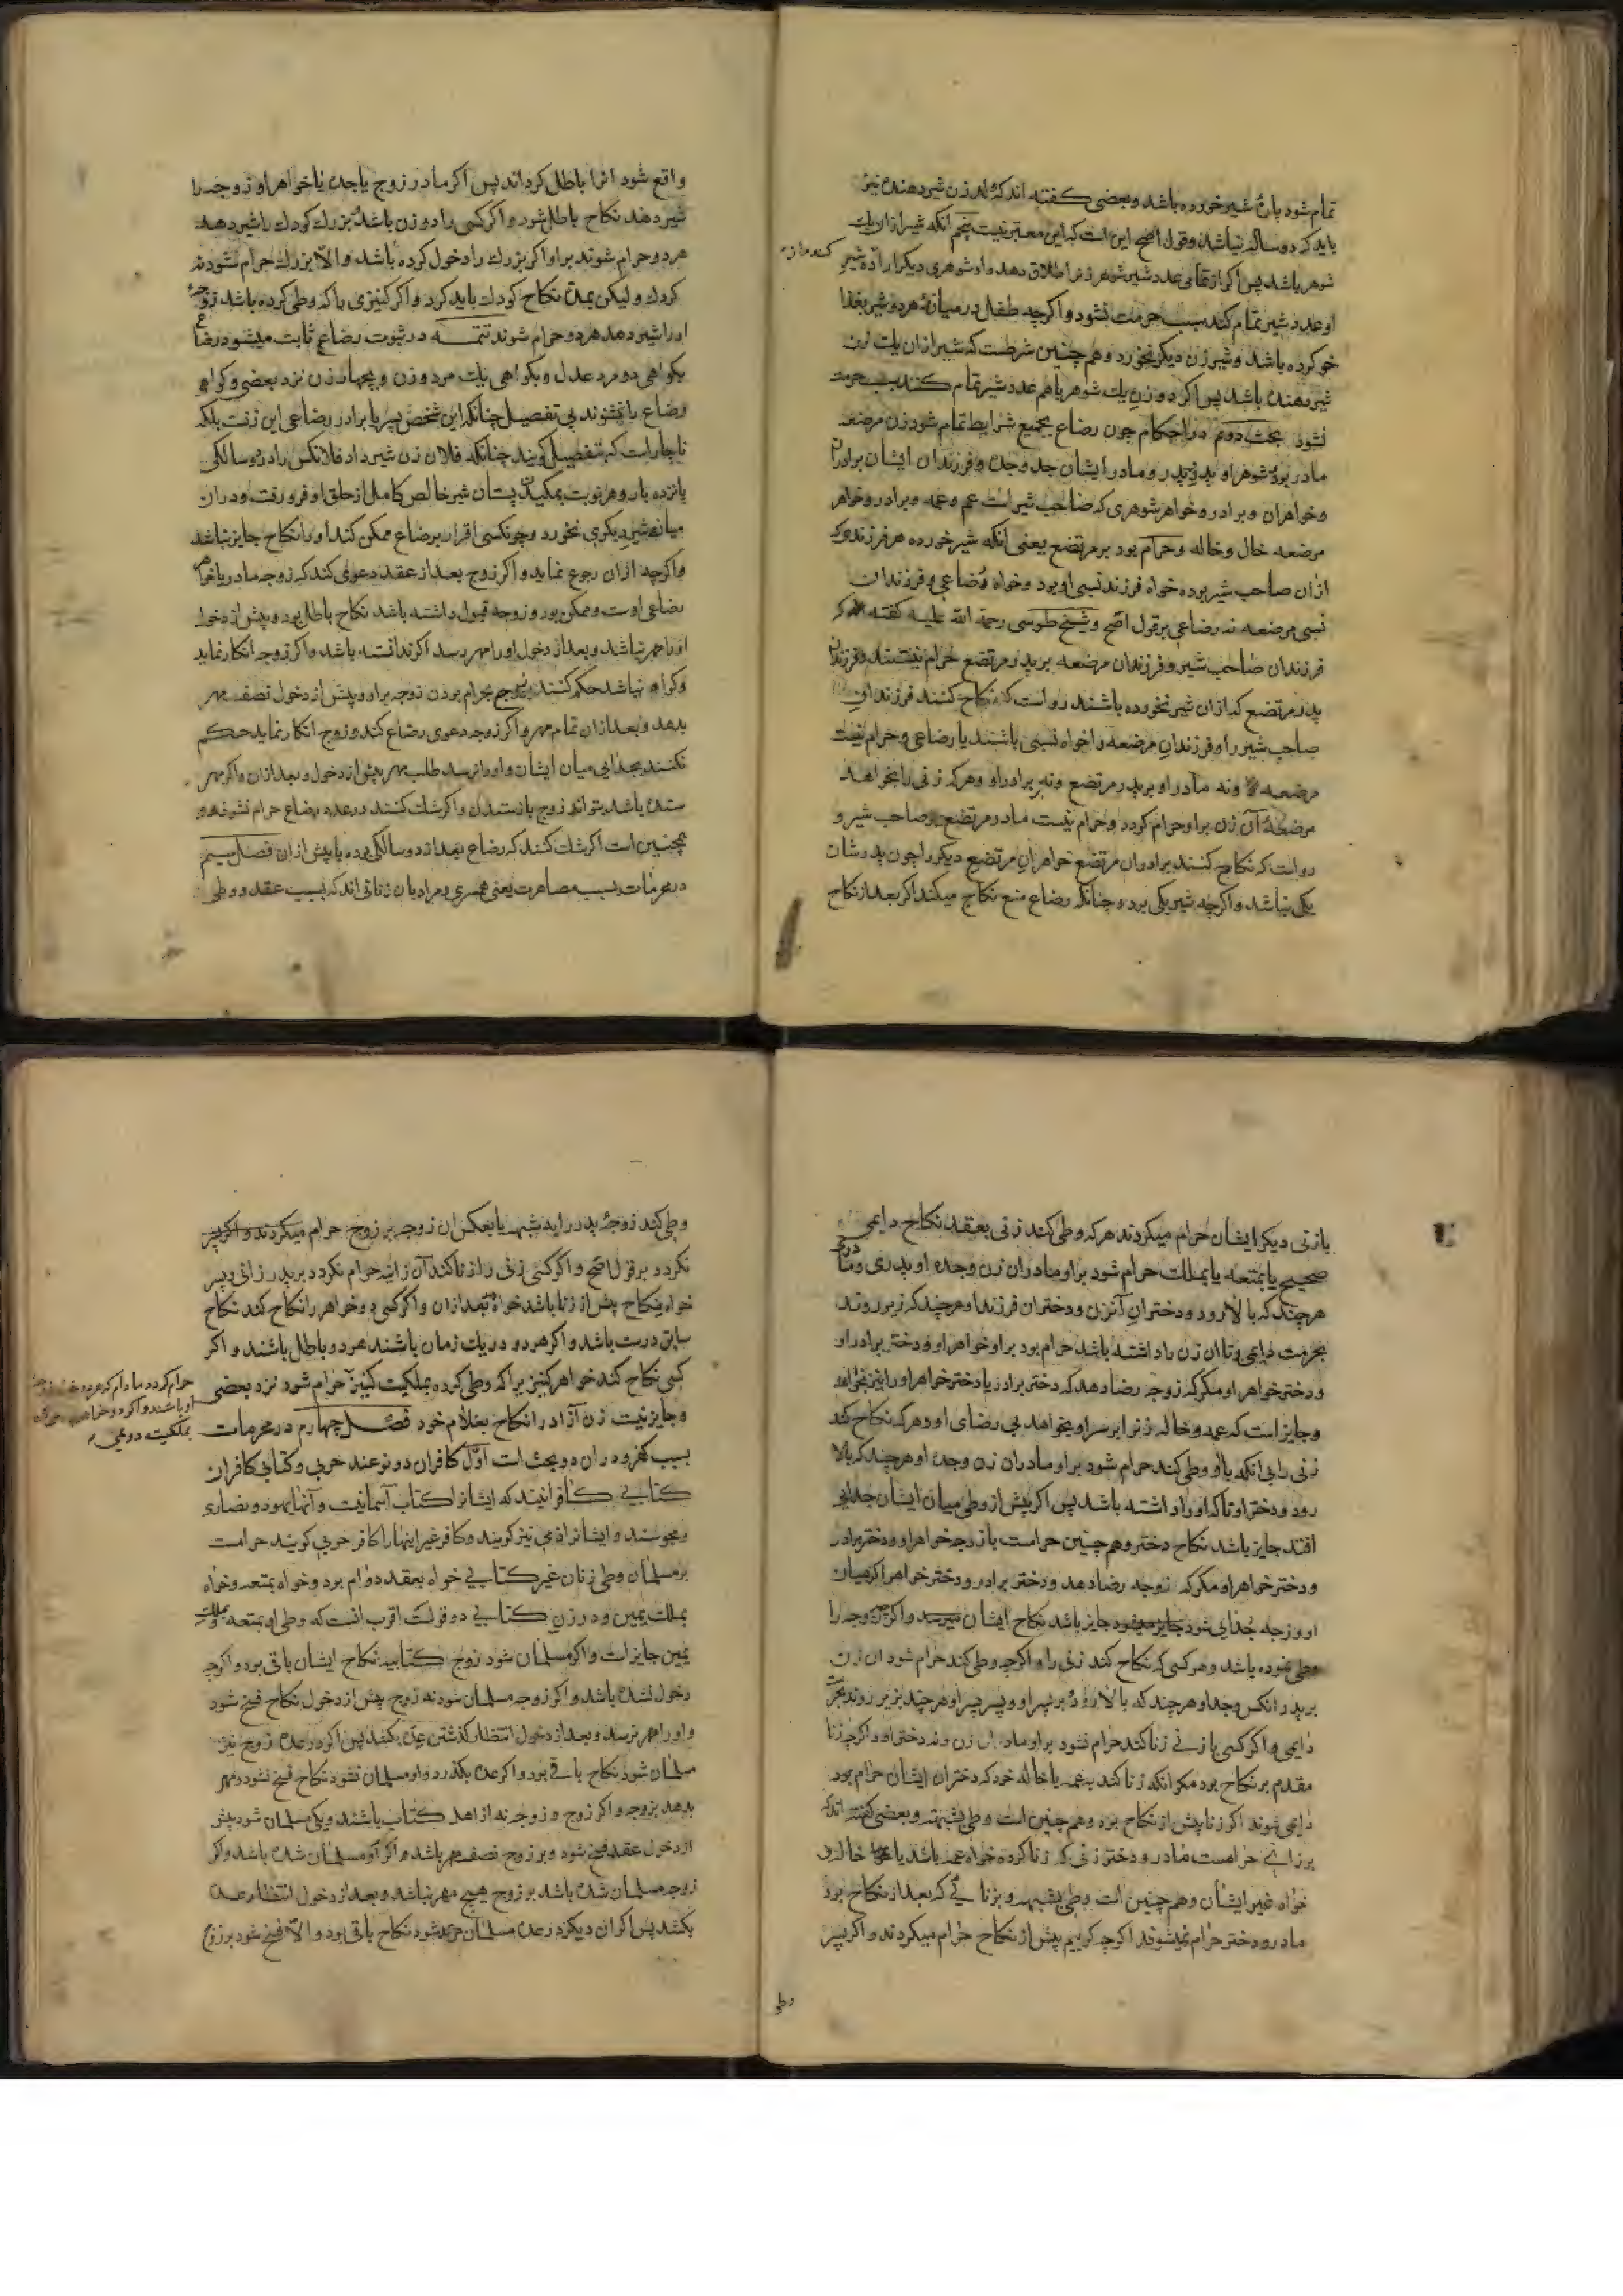 تمام شود پارهٔ شیر خورده باشد و بعضی کفته اند که ولد زن شیر دهنده نیز
باید که دو ساله نباشد و قول اصح این است که این معتبر نیست پنجم انکه شیر از ان یک
شوهر باشد پس اکر از تمامی عدد شیر شوهر زنرا طلاق دهد و او شوهری دیکر
او عدد شیر تمام کند سبب حرمت نشود و اکرچه طفل در میانهٔ هر دو شیر بغذا
خو کرده باشد و شیر زن دیکر نخورد و هم چنین شرطست که شیر از ان یک زن
شیر دهنده باشد پس اکر دو زن یک شوهر باهم عدد شیر تمام کنند سبب حرمت
نشود بحث دوم در احکام چون رضاع بجمیع شرایط تمام شود زن مرضعه
مادر بود و شوهر او پدر و پدر و مادر ایشان جد و جده و فرزندان ایشان برادران
و خواهران و برادر و خواهر شوهری که صاحب شیر است عم و عمه و برادر و خواهر
مرضعه خال و خاله و حرام بود بر مرتضع یعنی انکه شیر خورده هر فرزندی که
از ان صاحب شیر بوده خواه فرزند نسبی او بود و خواه رضاعی و فرزندان
نسبی مرضعه نه رضاعی بر قول اصح و شیخ طوسی رحمة الله علیه کفته که
فرزندان صاحب شیر و فرزندان مرضعه بر پدر مرتضع حرام نیستند و فرزندان
پدر مرتضع که از ان شیر نخورده باشند رواست که نکاح کنند فرزندان
صاحب شیر را و فرزندان مرضعه را خواه نسبی باشند یا رضاعی و حرام نیست
مرضعه و نه مادر او بر پدر مرتضع و نه بر برادر او و هرکه زنی را بخواهد
مرضعهٔ آن زن بر او حرام کردد و حرام نیست مادر مرتضع بر صاحب شیر و
رواست که نکاح کنند برادران مرتضع خواهران مرتضع دیکر را چون پدرشان
یکی نباشد و اکرچه شیر یکی بوده چنانکه رضاع منع نکاح میکند اکر بعد از نکاح
واقع شود انرا باطل کرداند پس اکر مادر زوج یا جده یا خواهر او زوجه را
شیر دهد نکاح باطل شود و اکر کسی را دو زن باشد بزرک کودک را شیر دهد
هر دو حرام شوند بر او اکر بزرک را دخول کرده باشد و الا بزرک حرام شود نه
کودک ولیکن نکاح کودک باید کرد و اکر کنیزی که وطی کرده باشد زوجهٔ
او را شیر دهد هر دو حرام شوند تتمه در ثبوت رضاع ثابت میشود رضاع
بکواهی دو مرد عدل و بکواهی یک مرد و دو زن و بچهار زن نزد بعضی و کواهی
رضاع را نشنوند بی تفصیل چنانکه این شخص پسر یا برادر رضاعی این زنست بلکه
ناچارست که بتفصیل کویند چنانکه فلان زن شیر داد فلانکس را در دو سالکی
پانزده بار و هر نوبت بمکیدن پستان شیر خالص کامل از حلق او فرو رفت و در ان
میانه شیر دیکری نخورد و چون کسی اقرار برضاع ممکن کند او را نکاح جایز نباشد
و اکرچه از ان رجوع نماید و اکر زوج بعد از عقد دعوی کند که زوجه مادر یا خواهر
رضاعی اوست و ممکن بود و زوجه قبول داشته باشد نکاح باطل بود و پیش از دخول
او را مهر نباشد و بعد از دخول او را مهر رسد اکر ندانسته باشد و اکر زوجه انکار نماید
و کواه نباشد حکم کنند بحرام بودن زوجه بر او و پیش از دخول نصف مهر
بدهد و بعد از ان تمام مهر و اکر زوجه دعوی رضاع کند و زوج انکار نماید حکم
نکنند بجدایی میان ایشان و او را نرسد طلب مهر پیش از دخول و بعد از ان و اکر مهر
ستده باشد نتواند زوج بازستدن و اکر شک کنند در عدد رضاع حرام نشوند و
همچنین است اکر شک کنند که رضاع بعد از دو سالکی بوده یا پیش از ان فصل سیم
در محرمات بسبب مصاهرت یعنی همسری و مراد بان زنانی اند که بسبب عقد و وطی
با زنی دیکر ایشان حرام میکردند هرکه وطی کند زنی بعقد نکاح دایمی
صحیح یا بمتعه یا بملک حرام شود بر او مادران زن و جدهٔ او پدری و مادری
هرچند که بالا رود و دختران آنزن و دختران فرزند او هرچند که زیر روند
بحرمت دایمی و تا ان زن را داشته باشد حرام بود بر او خواهر او و دختر برادر او
و دختر خواهر او مکر که زوجه رضا دهد که دختر برادر یا دختر خواهر او را نیز بخواهد
و جایز است که عمه و خاله زنرا بر سر او بخواهد بی رضای او و هرکه نکاح کند
زنی را بی انکه با او وطی کند حرام شود بر او مادران زن و جده او هرچند که بالا
رود و دختر او تا که او را داشته باشد پس اکر پیش از وطی میان ایشان جدایی
افتد جایز باشد نکاح دختر و هم چنین حرامست با زوجه خواهر او و دختر برادر
و دختر خواهر او مکر که زوجه رضا دهد و دختر برادر و دختر خواهر اکر میان
او و زوجه جدایی شود جایز باشد نکاح ایشان
وطی نموده باشد و هر کسی که نکاح کند زنی را و اکرچه وطی نکند حرام شود ان زن
بر پدر انکس و جد او هرچند که بالا رود و بر پسر او و پسر پسر او هرچند بزیر روند
دایمی و اکر کسی با زنی زنا کند حرام نشود بر او مادر ان زن و نه دختر او و اکرچه زنا
مقدم بر نکاح بود مکر انکه زنا کند بعمه یا خاله خود که دختران ایشان حرام بود
دایمی شوند اکر زنا پیش از نکاح بود و هم چنین است وطی بشبهه و بعضی کفته اند که
بر زانی حرامست مادر و دختر زنی که زنا کرده خواه عمه باشد یا خاله و
خواه غیر ایشان و هم چنین است وطی بشبهه و بزنایی که بعد از نکاح بود
مادر و دختر حرام نمیشوند اکرچه کوییم پیش از نکاح حرام میکردند و اکر پسر
وطی
وطی کند زوجهٔ پدر را بشبهه یا بعکس ان زوجه بر زوج حرام
نکردد بر قول اصح و اکر کسی زنی را زنا کند آن زانیه حرام نکردد بر پدر زانی و پسر
خواه نکاح پیش از زنا باشد خواه بعد از ان و اکر کسی دو خواهر را نکاح کند نکاح
سابق درست باشد و اکر هر دو در یک زمان باشند هر دو باطل باشند و اکر
کسی نکاح کند خواهر کنیز را که وطی کرده بملکیت کنیز حرام شود نزد بعضی
و جایز نیست زن آزاد را نکاح بغلام خود فصل چهارم در محرمات
بسبب کفر و در ان دو بحث است اول کافران دو نوعند حربی و کتابی کافران
کتابی کافرانیند که ایشانرا کتاب آسمانیست و آنها یهود و نصاری
و مجوسند و ایشانرا ذمی نیز کویند و کافر غیر اینها را کافر حربی کویند حرامست
بر مسلمان وطی زنان غیر کتابی خواه بعقد دوام بود و خواه بمتعه و خواه
بملک یمین و در زن کتابی دو قولست اقرب انست که وطی او بمتعه و بملک
یمین جایز است و اکر مسلمان شود زوج کتابیه نکاح ایشان باقی بود و اکرچه
دخول نشده باشد و اکر زوجه مسلمان شود نه زوج پیش از دخول نکاح فسخ شود
و او را مهر نرسد و بعد از دخول انتظار کذشتن عده بکشد پس اکر در عده زوج نیز
مسلمان شود نکاح باقی بود و اکر عده بکذرد و او مسلمان نشود نکاح فسخ شود و مهر
بدهد بزوجه و اکر زوج و زوجه نه از اهل کتاب باشند و یکی مسلمان شود پیش
از دخول عقد فسخ شود و بر زوج نصف مهر باشد اکر او مسلمان شده باشد و اکر
زوجه مسلمان شده باشد بر زوج هیچ مهر نباشد و بعد از دخول انتظار عده
بکشد پس اکر ان دیکر در عده مسلمان شود نکاح باقی بود و الا فسخ شود بر زوج
حرام کردد مادام که هر دو
او باشند و اکر دو خواهر
بملکیت دویمی